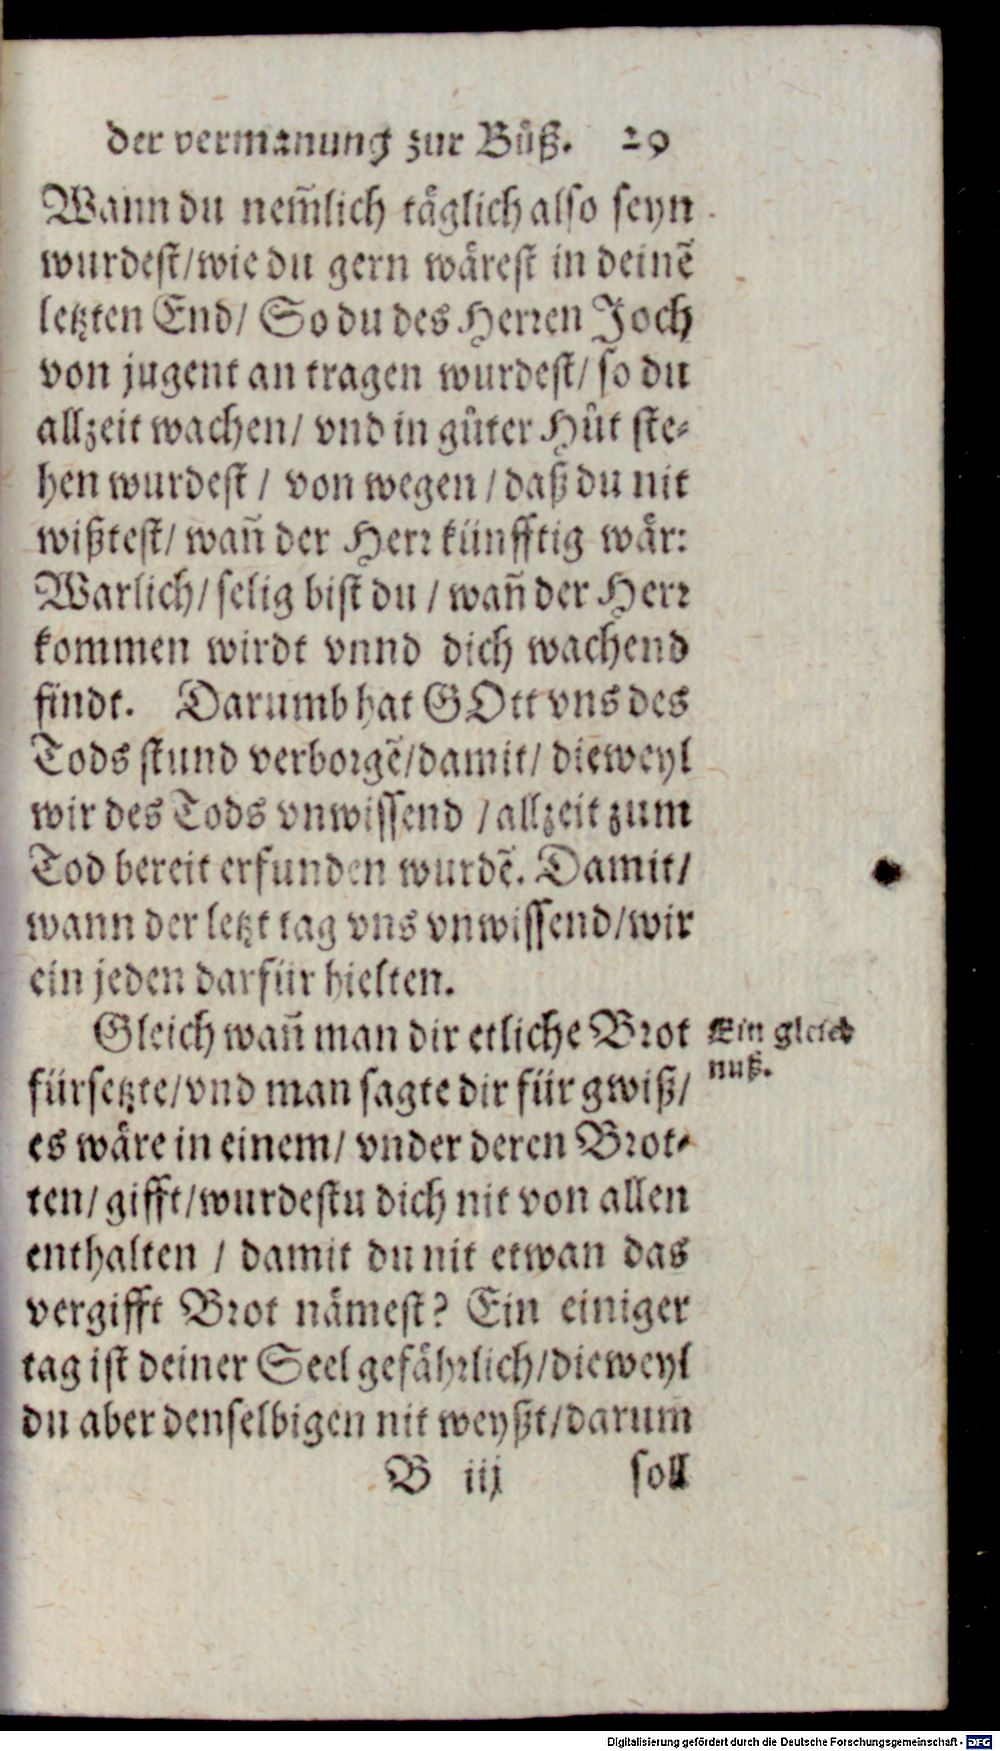 der vermanung zur Bůß. 29
Wann du nem̃lich täglich also seyn
wurdest/wie du gern wärest in deinẽ
letzten End/ So du des Herren Joch
von jugent an tragen wurdest/ so du
allzeit wachen/ vnd in gůter Hůt ste-
hen wurdest / von wegen / daß du nit
wißtest/ wañ der Herr künfftig wär:
Warlich/ selig bist du / wañ der Herr
kommen wirdt vnnd dich wachend
findt. Darumb hat GOtt vns des
Tods stund verborgẽ/damit/ dieweyl
wir des Tods vnwissend / allzeit zum
Tod bereit erfunden wurdẽ. Damit/
wann der letzt tag vns vnwissend/wir
ein jeden darfür hielten.
Gleich wañ man dir etliche Brot
fürsetzte/vnd man sagte dir für gwiß/
es wäre in einem/ vnder deren Brot-
ten/ gifft/wurdestu dich nit von allen
enthalten / damit du nit etwan das
vergifft Brot nämest? Ein einiger
tag ist deiner Seel gefährlich/dieweyl
du aber denselbigen nit weyßt/darum
B iij soll
Ein gleich
nuß.
Digitalisierung gefördert durch die Deutsche Forschungsgemeinschaft - DFG